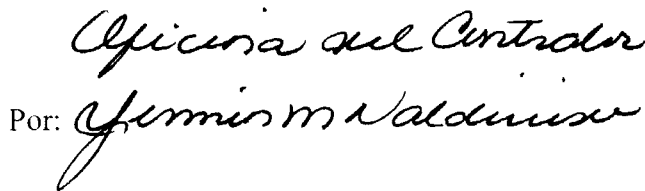 Oficina del Contralor
Por: Yennis M Valdivieso